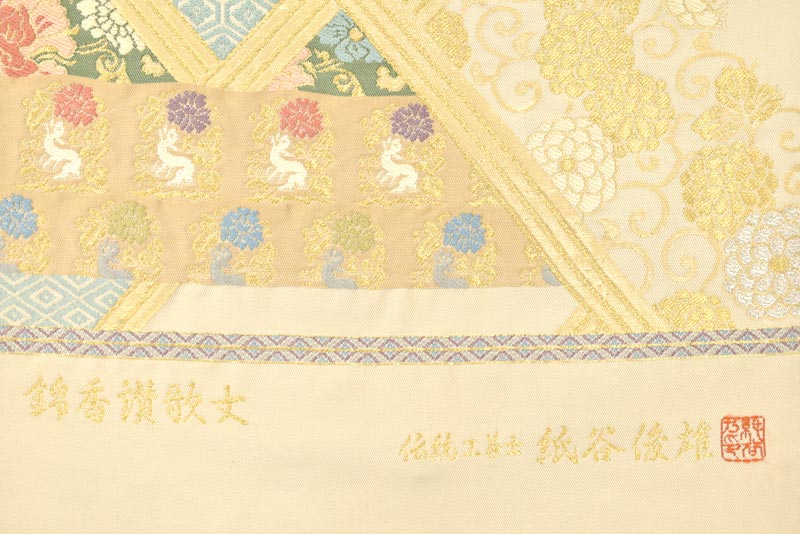 錦香讃歌文
伝統工芸士 紙谷俊雄